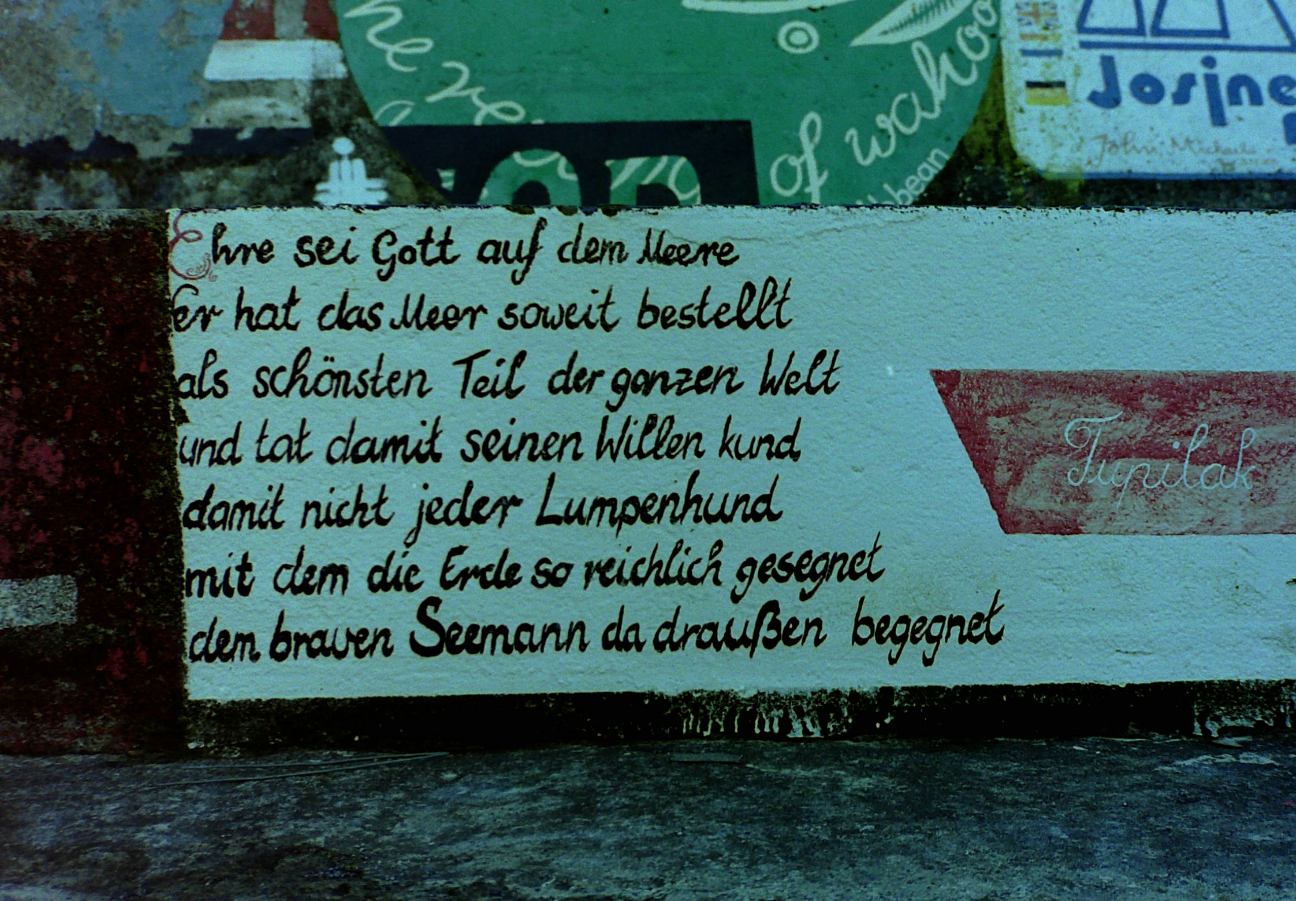 of wahoo
Josine
John Michael
Ehre sei Gott auf dem Meere
er hat das Meer soweit bestellt
als schönsten Teil der ganzen Welt
und tat damit seinen Willen kund
damit nicht jeder Lumpenhund
mit dem die Erde so reichlich gesegnet
dem braven Seemann da draußen begegnet
Tupilak